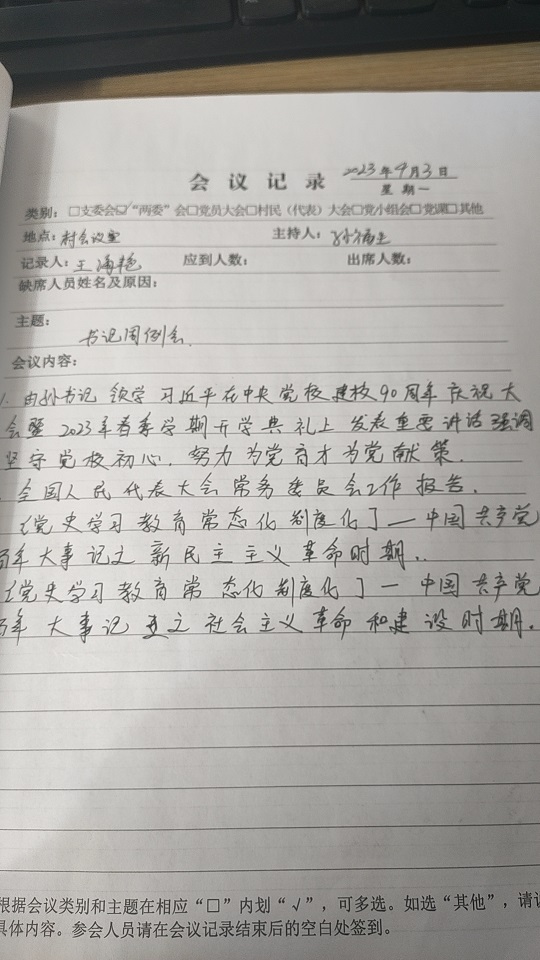 会议记录 2023年4月3日
星期一
类别：□支委会☑“两委”会□党员大会□村民（代表）大会□党小组会□党课□其他
地点：村会议室 主持人：
记录人：王 应到人数： 出席人数：
缺席人员姓名及原因：
主题：
书记周例会.
会议内容：
1. 由孙书记 领学 习近平在中央党校建校90周年庆祝大
会暨 2023年春季学期开学典礼上 发表重要讲话 强调
坚守党校初心. 努力为党育才为党献策.
. 全国人民代表大会常务委员会工作报告.
【党史学习教育常态化制度化】—中国共产党
百年大事记之 新民主主义革命时期..
【党史学习教育常态化制度化】—中国共产党
百年大事记之 社会主义革命和建设时期.
根据会议类别和主题在相应“□”内划“√”，可多选。如选“其他”，请
具体内容。参会人员请在会议记录结束后的空白处签到。